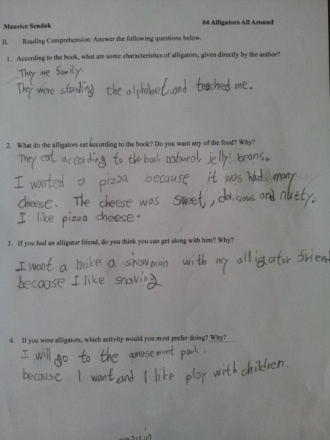 Maurice Sendak #4 Alligators All Around
II. Reading Comprehension: Answer the following questions below.
1. According to the book, what are some characteristics of alligators, given directly by the author?
They are family.
They were studing the alphabet and teached me.
2. What do the alligators eat according to the book? Do you want any of the food? Why?
They eat according to the book oatmeal, jelly beans.
I wanted a pizza because it was had many
cheese. The cheese was sweet, delicious and nutty.
I like pizza cheese.
3. If you had an alligator friend, do you think you can get along with him? Why?
I want a make a snowman with my alligator friend
because I like snowing
4. If you were alligators, which activity would you most prefer doing? Why?
I will go to the amusement park.
because I want and I like play with children.